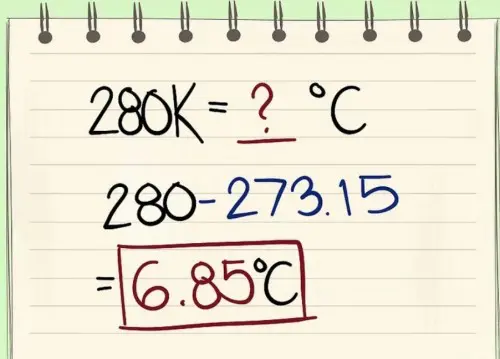 280K = ? °C
280-273.15
= 6.85°C